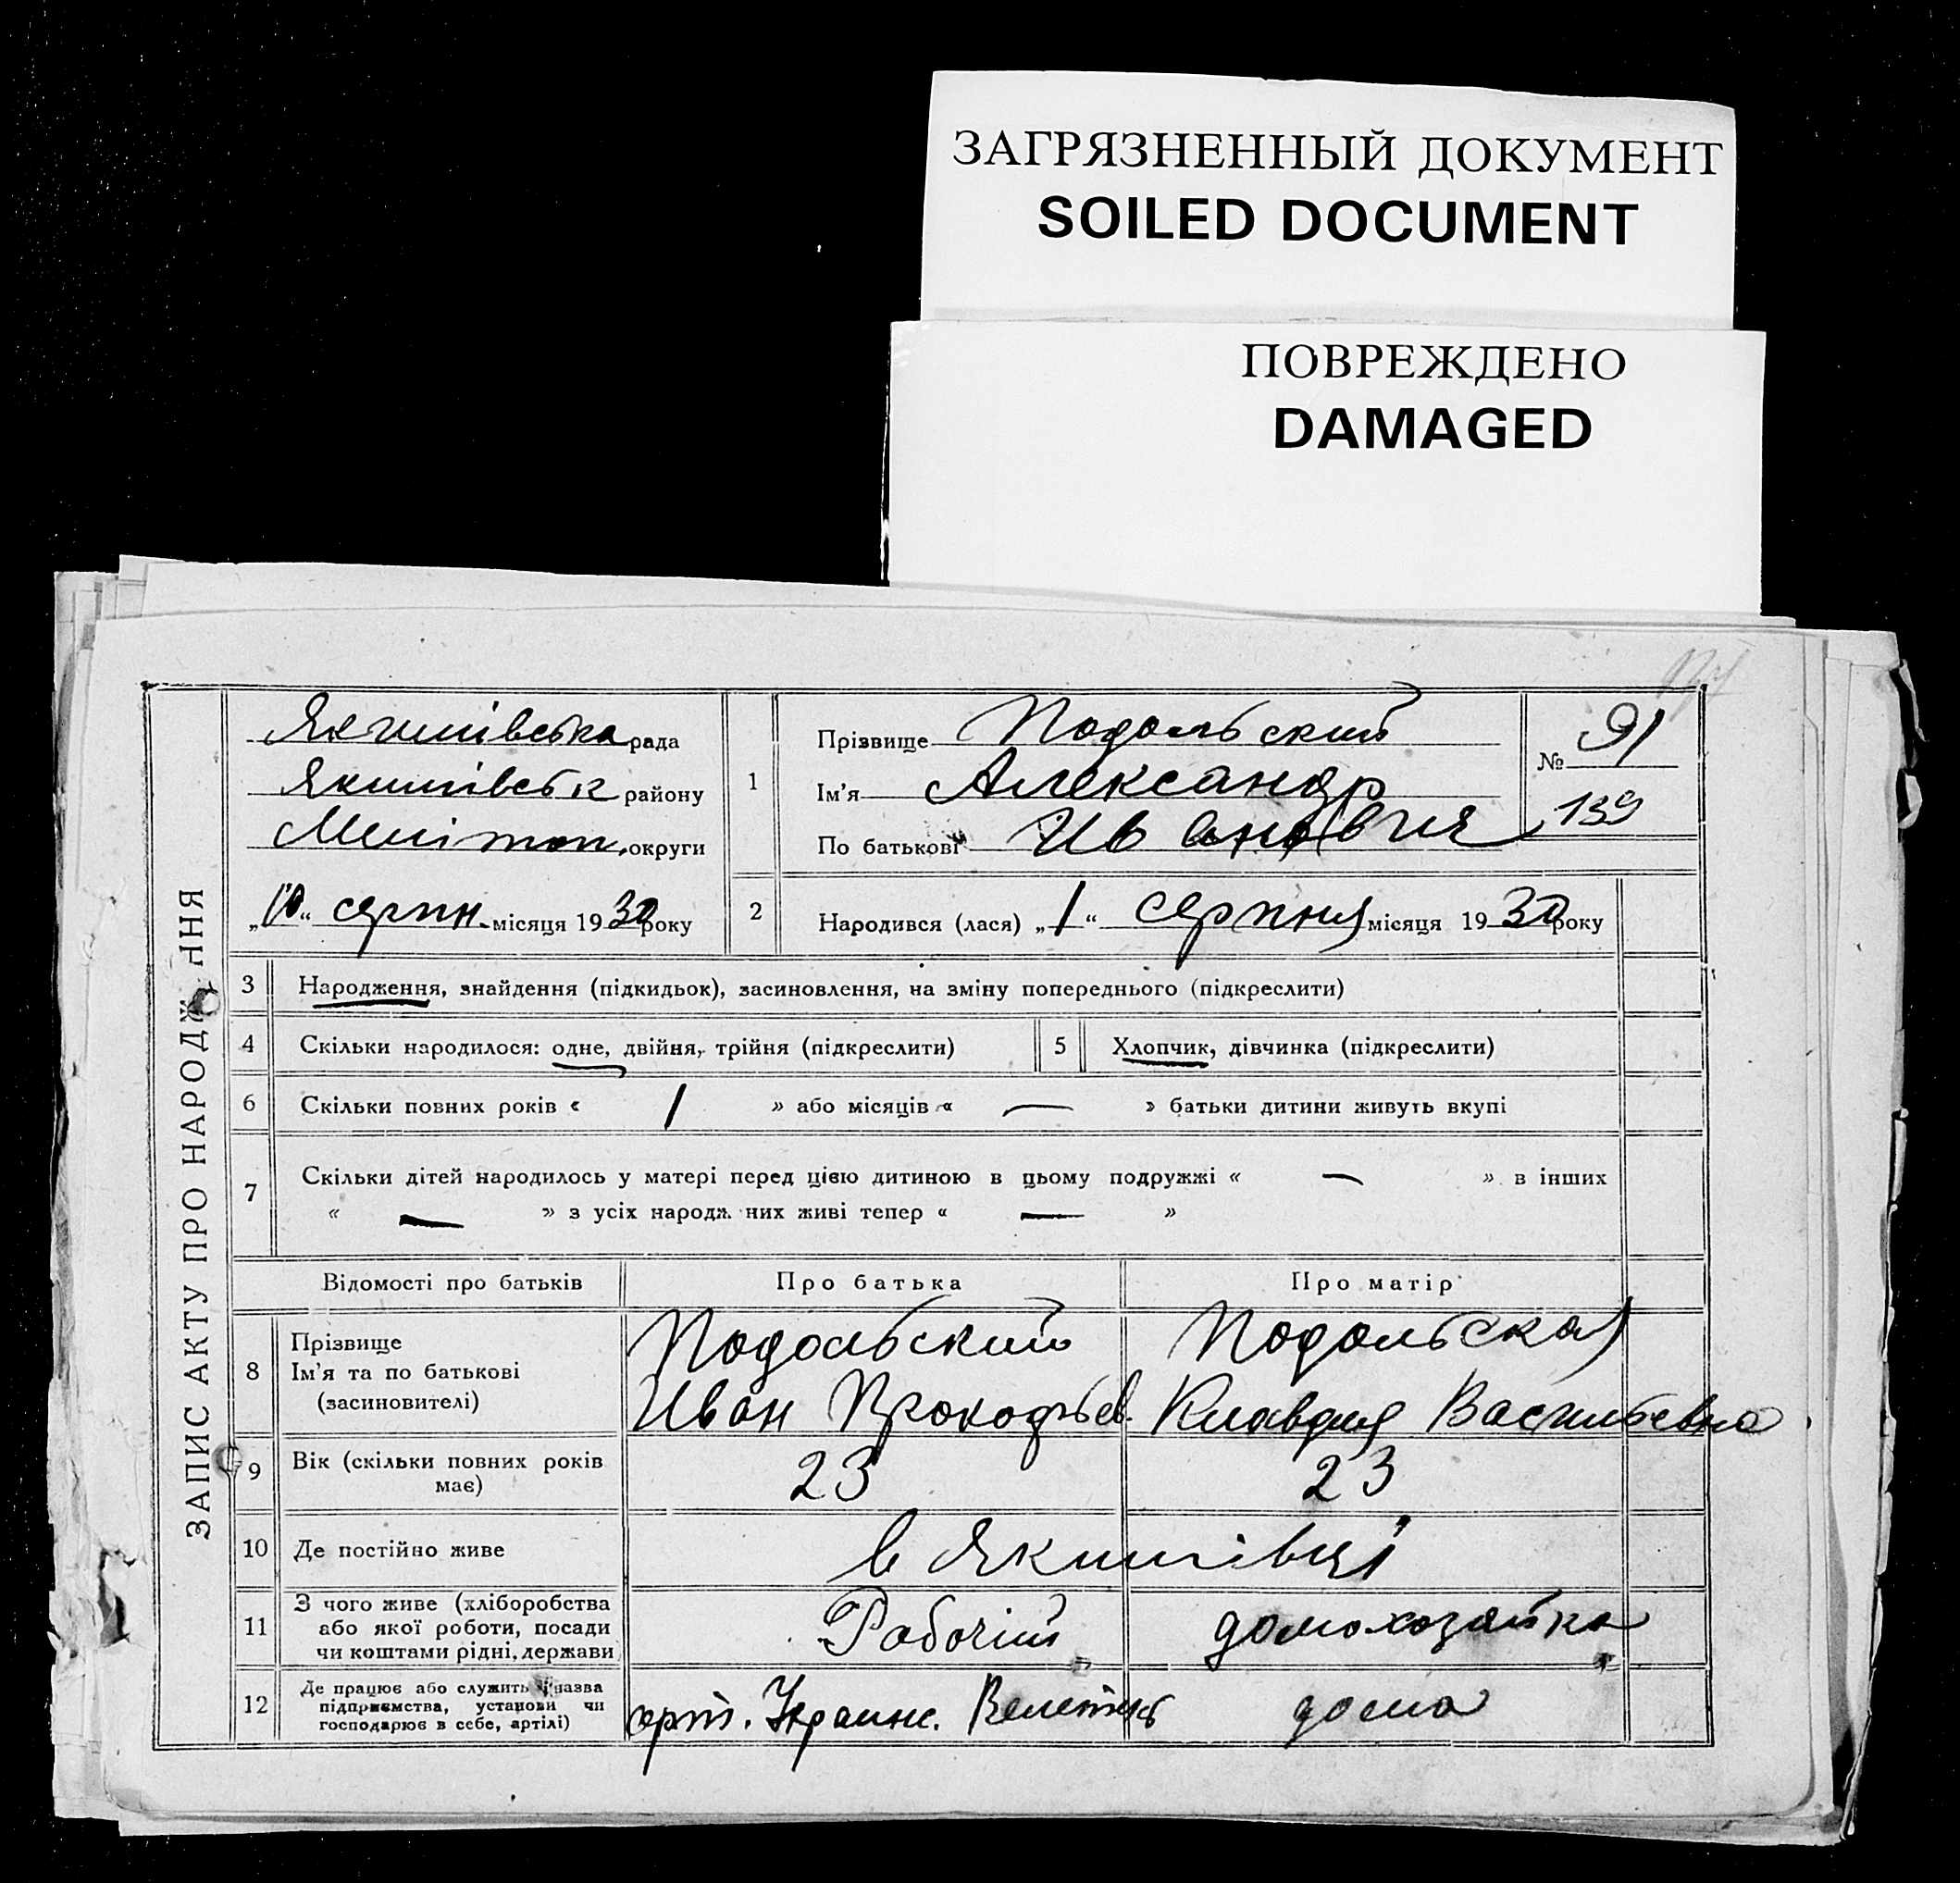 ЗАГРЯЗНЕННЫЙ ДОКУМЕНТ
SOILED DOCUMENT
ПОВРЕЖДЕНО
DAMAGED
ЗАПИС АКТУ ПРО НАРОДЖЕННЯ
Якимівська рада
Якимівськ району
Меліտոп. округи
„10“ серпн. місяця 1930 року
1
Прізвище Подольский
Ім'я Александр
По батькові Иванович
№ 91
139
2
Народився (лася) „1“ серпня місяця 1930 року
3 Народження, знайдення (підкидьок), засиновлення, на зміну попереднього (підкреслити)
4 Скільки народилося: одне, двійня, трійня (підкреслити) 5 Хлопчик, дівчинка (підкреслити)
6 Скільки повних років « 1 » або місяців « — » батьки дитини живуть вкупі
7 Скільки дітей народилось у матері перед цією дитиною в цьому подружжі « — » в інших
« — » з усіх народж них живі тепер « — »
Відомості про батьків Про батька Про матір
8 Прізвище
Ім'я та по батькові
(засиновителі)
Подольский
Иван Прокофьев.
Подольская
Клавдия Васильевна
9 Вік (скільки повних років
має)
23 23
10 Де постійно живе в Якимівці
11 З чого живе (хліборобства
або якої роботи, посади
чи коштами рідні, держави
Рабочій домохозяйка
12 Де працює або служить і назва
підприємства, установи чи
господарює в себе, артілі)
арт. Украинс. дома